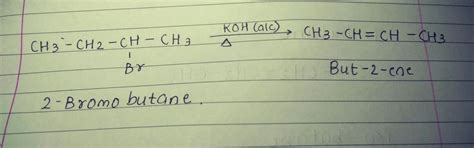 CH3 - CH2 - CH - CH3 KOH (alc) Δ → CH3 - CH = CH - CH3
Br But-2-ene
2-Bromo butane.